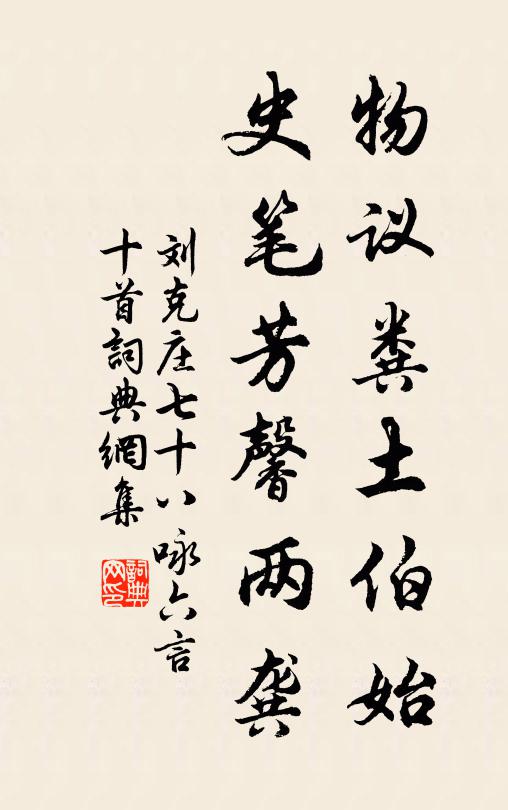 物议粪土伯始
史笔芳馨两龚
刘克庄七十八咏六言
十首詞典網集
詞典网印